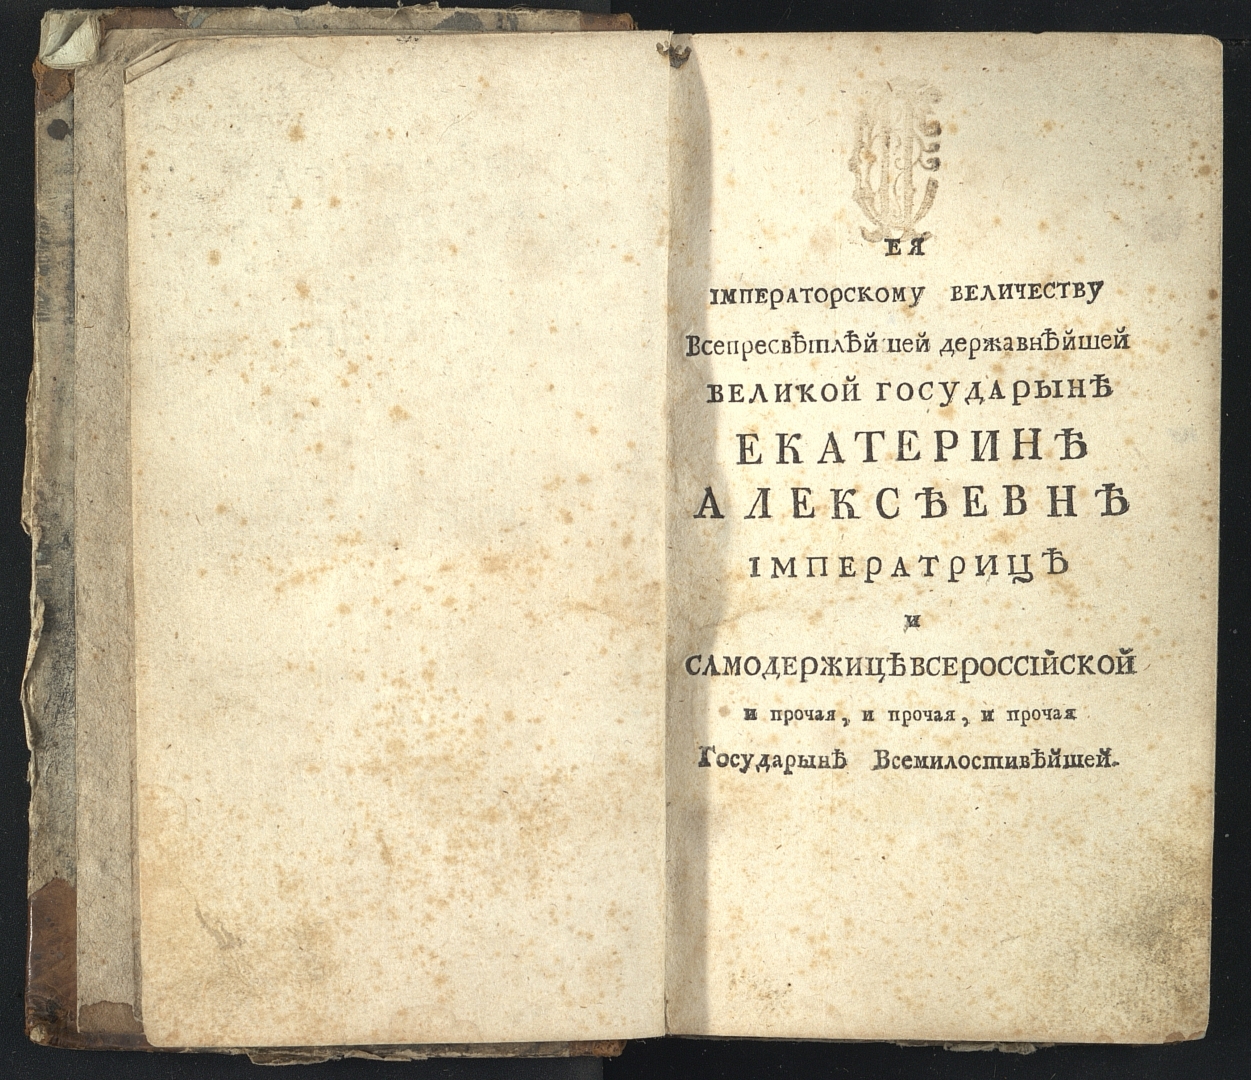 ЕЯ
ІМПЕРАТОРСКОМУ ВЕЛИЧЕСТВУ
Всепресвѣтлѣйшей державнѣйшей
ВЕЛИКОЙ ГОСУДАРЫНѢ
ЕКАТЕРИНѢ
АЛЕКСѢЕВНѢ
ІМПЕРАТРИЦѢ
и
САМОДЕРЖИЦѢ ВСЕРОССІЙСКОЙ
и прочая, и прочая, и прочая
Государынѣ Всемилостивѣйшей.